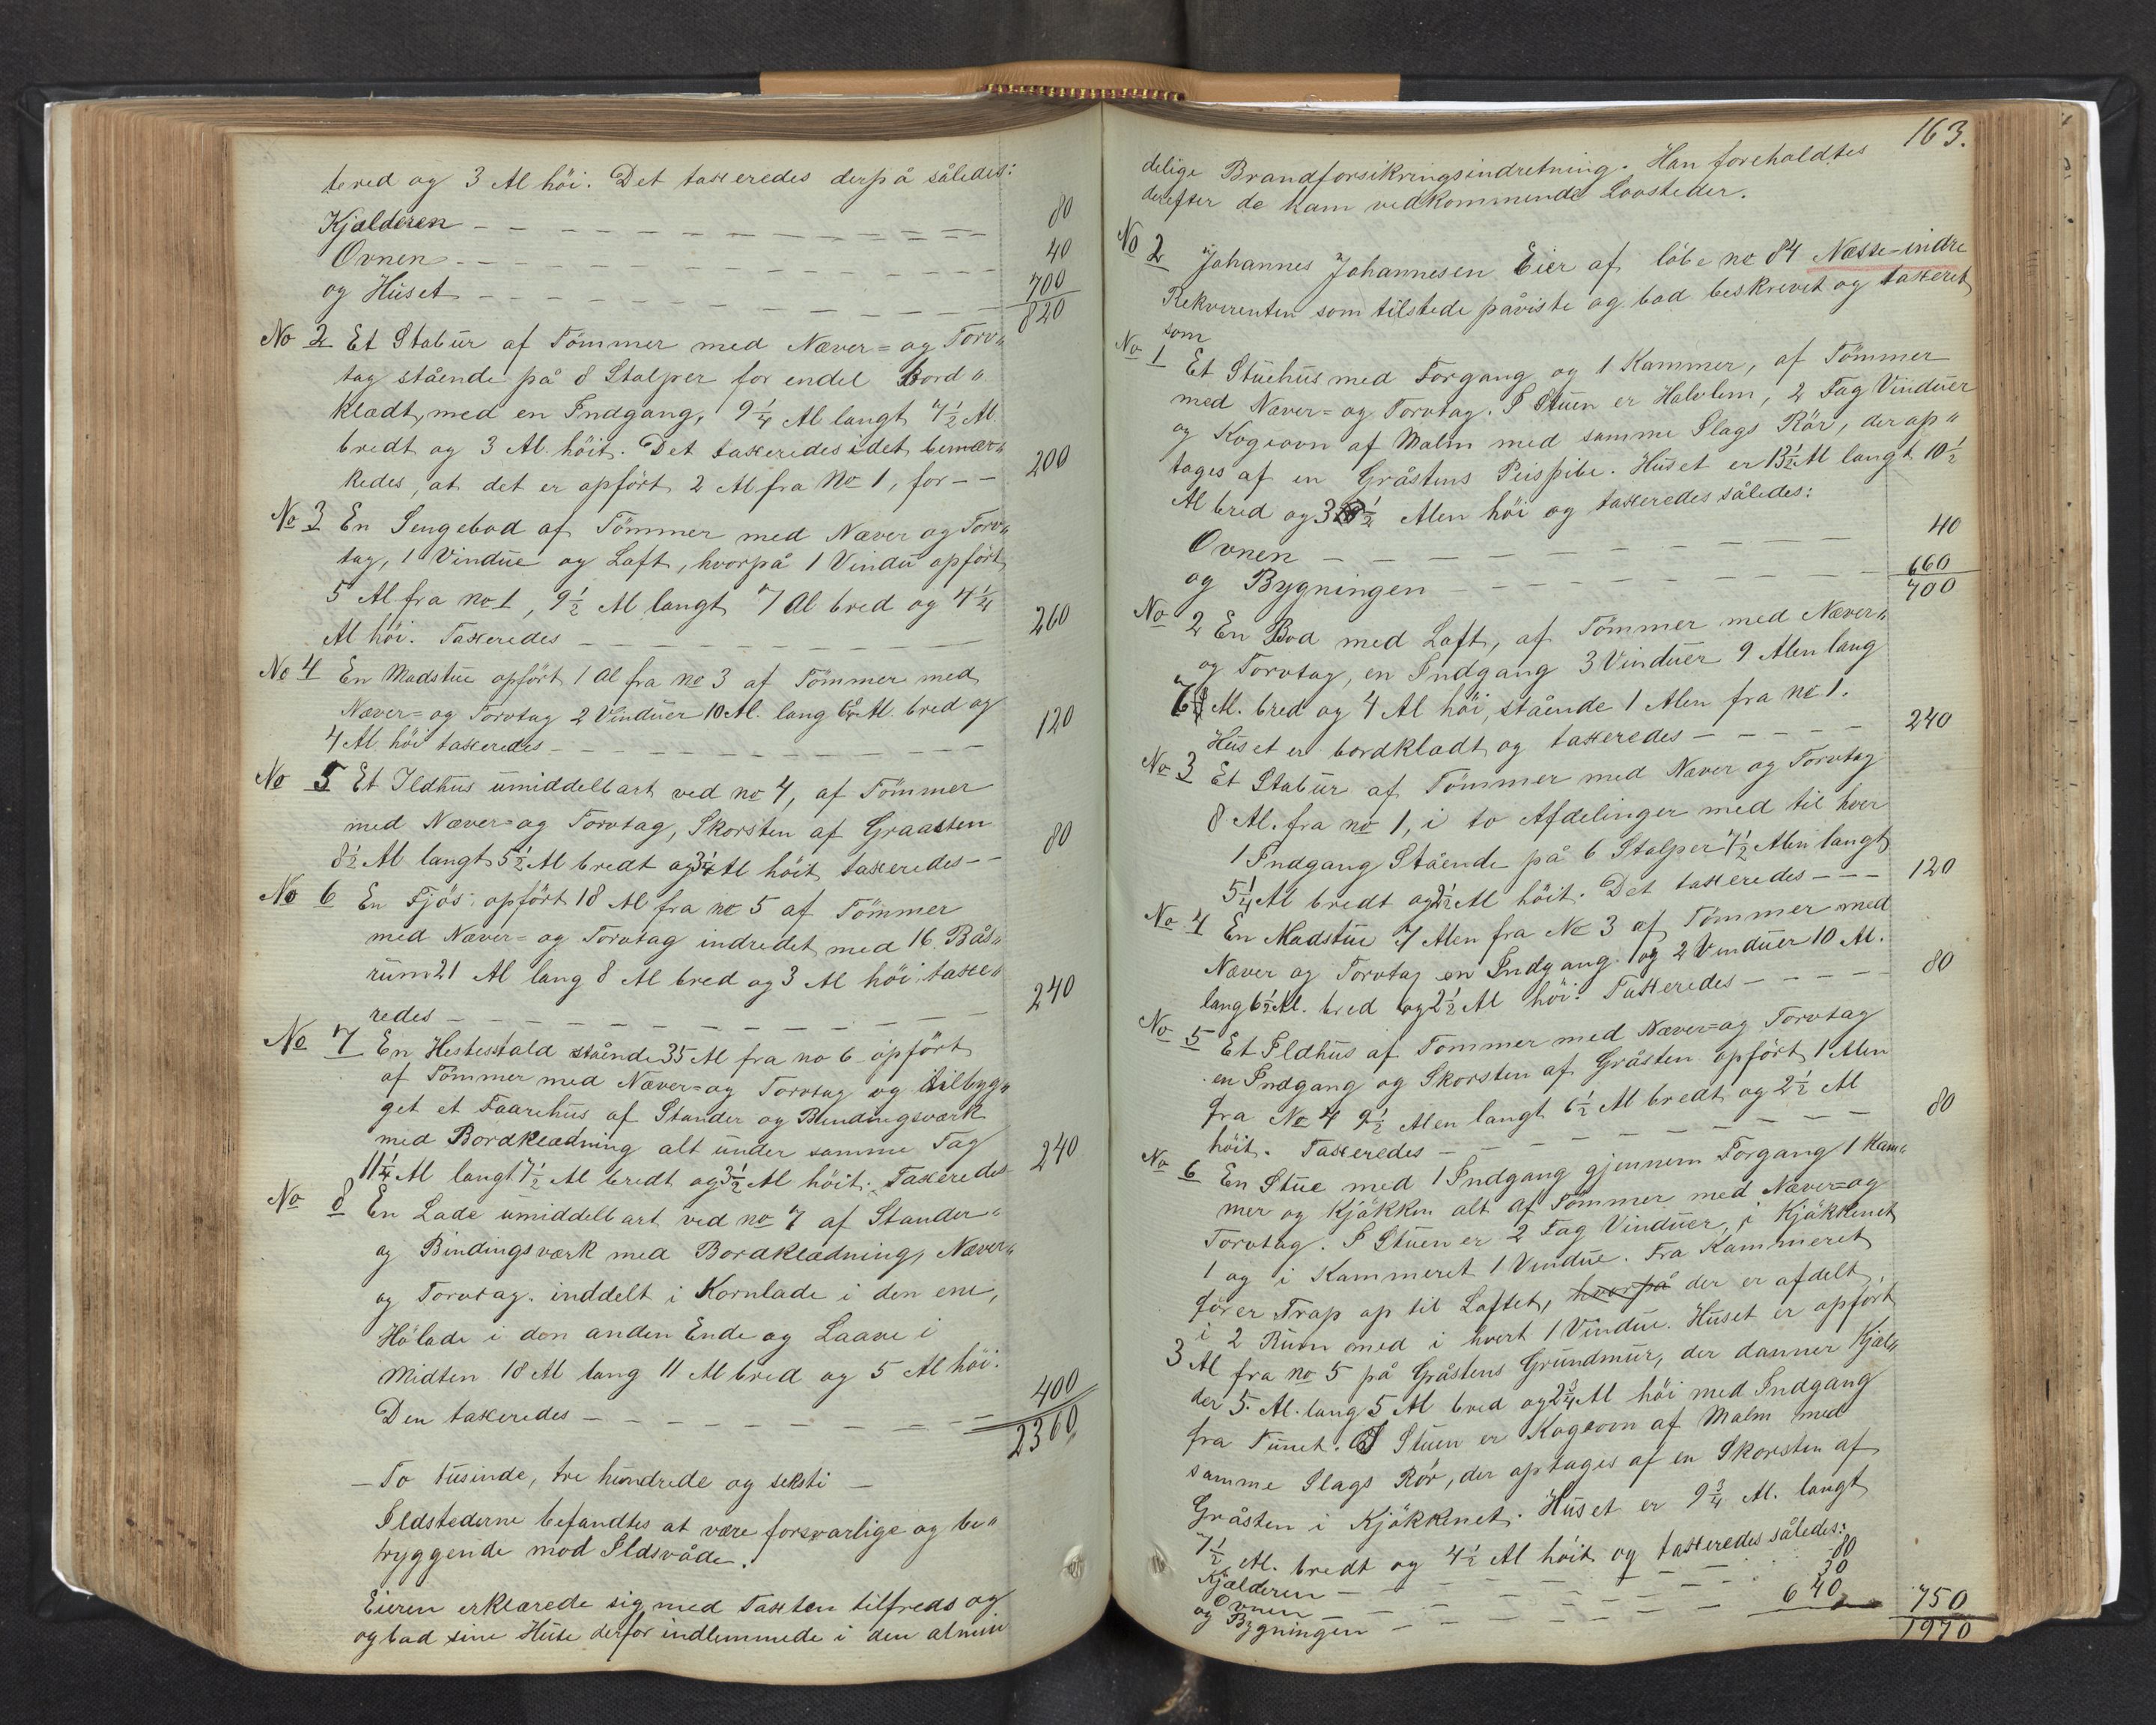 tered og 3 Al höi. Det taxeredes derpå således:
Kjælderen — — — 80
Ovnen — — — 40
og Huset — — — 700
820
No 2 Et Stabur af Tömmer med Næver= og Torv„
tag stående på 8 Stolper for endel Bord„
klædt, med en Indgang, 9 1/4 Al langt 7 1/2 Al.
bredt og 3 Al. höit. Det taxeredes idet bemær„
kedes, at det er opfört 2 Al fra No 1, for — — 200
No 3 En Sengebod af Tömmer med Næver og Torv„
tag, 1 Vindue og Loft, hvorpå 1 Vindu opfört
5 Al fra no 1, 9 1/2 Al langt 7 Al bred og 4 1/4
Al höi. Taxeredes — — — 260
No 4 En Madstue opfört 1 Al fra no 3 af Tömmer med
Næver= og Torvtag 2 Vinduer 10 Al. lang Al. bred og
4 Al höi taxeredes — — — 120
No 5 Et Ildhus umiddelbart ved no 4, af Tömmer
med Næver= og Torvtag, Skorsten af Graasten
8 1/2 Al langt 5 1/2 Al bredt og 3 1/4 Al höit taxeredes — — 80
No 6 En Fjös opfört 18 Al fra no 5 af Tömmer
med Næver= og Torvtag indredet med 16 Bås„
rum 21 Al lang 8 Al bred og 3 Al höi taxe„
redes — — — 240
No 7 En Hestestald stående 35 Al fra no 6 opfört
af Tömmer med Næver= og Torvtag og tilbyg„
get et Faarehus af Stander og Bindingsværk
med Bordklædning alt under samme Tag
11 1/4 Al langt 7 1/2 Al bredt og 3 1/2 Al höit. Taxeredes 240
No 8 En Lade umiddelbart ved no 7 af Stander„
og Bindingsværk med Bordklædning, Næver„
og Torvtag. inddelt i Kornlade i den ene,
Hölade i den anden Ende og Laave i
Midten 18 Al lang 11 Al bred og 5 Al höi.
Den taxeredes — — — 400
2360„
— To tusinde, tre hundrede og seksti —
Ildstederne befandtes at være forsvarlige og be„
tryggende mod Ildsvåde.
Eieren erklærede sig med Taxten tilfreds og
og bad sine Huse derfor indlemmede i den almin
163.
delige Brandforsikringsindretning. Han foreholdtes
derefter de ham vedkommende Lovsteder.
No 2 Johannes Johannesen Eier af löbe no 84 Næsse-indre
Rekvirenten som tilstede påviste og bad beskrevet og taxeret
som
No 1 Et Stuehus med Forgang og 1 Kammer, af Tömmer
med Næver= og Torvtag. I Stuen er Halvlem, 2 Fag Vinduer
og Kogeovn af Malm med samme Slags Rör, der op„
tages af en Gråstens Peispibe. Huset er 13 1/2 Al langt 10 1/2
Al bred og 3 1/2 Alen höi og taxeredes således:
Ovnen — — — 40
og Bygningen — — — 660
700
No 2 En Bod med Loft, af Tömmer med Næver„
og Torvtag, en Indgang 3 Vinduer 9 Alen lang
Al. bred og 4 Al höi, stående 1 Alen fra no 1.
Huset er bordklædt og taxeredes — — — 240
No 3 Et Stabur af Tömmer med Næver og Torvtag
8 Al. fra no 1, i to Afdelinger med til hver
1 Indgang Stående på 6 Stolper 7 1/2 Alen langt
5 1/4 Al bredt og 2 1/2 Al höit. Det taxeredes — — — 120
No 4 En Madstue 7 Alen fra No 3 af Tömmer med
Næver og Torvtag en Indgang og 2 Vinduer 10 Al.
lang 6 1/2 Al. bred og 2 1/2 Al höi. Taxeredes — — — 80
No 5 Et Ildhus af Tömmer med Næver= og Torvtag
en Indgang og Skorsten af Gråsten opfört 1 Alen
fra No 4 9 1/2 Alen langt 6 1/2 Al bredt og 2 1/2 Al
höit. Taxeredes — — — 80
No 6 En Stue med 1 Indgang gjennem Forgang 1 Kam„
mer og Kjökken alt af Tömmer med Næver= og
Torvtag. I Stuen er 2 Fag Vinduer, i Kjökkenet
1 og i Kammeret 1 Vindue. Fra Kammeret
förer Trap op til Loftet, hvorpå der er afdelt
i 2 Rum med i hvert 1 Vindue. Huset er opfört
3 Al fra no 5 på Gråstens Grundmur, der danner Kjæl„
der 5. Al. lang 5 Al bred og 2 3/4 Al höi med Indgang
fra Tunet. I Stuen er Kogeovn af Malm med
samme Slags Rör, der optages af en Skorsten af
Gråsten i Kjökkenet. Huset er 9 3/4 Al. langt
7 1/2 Al. bredt og 4 1/2 Al höit og taxeredes således:
Kjælderen — — — 80
Ovnen — — — 30
og Bygningen — — — 640 750
1970